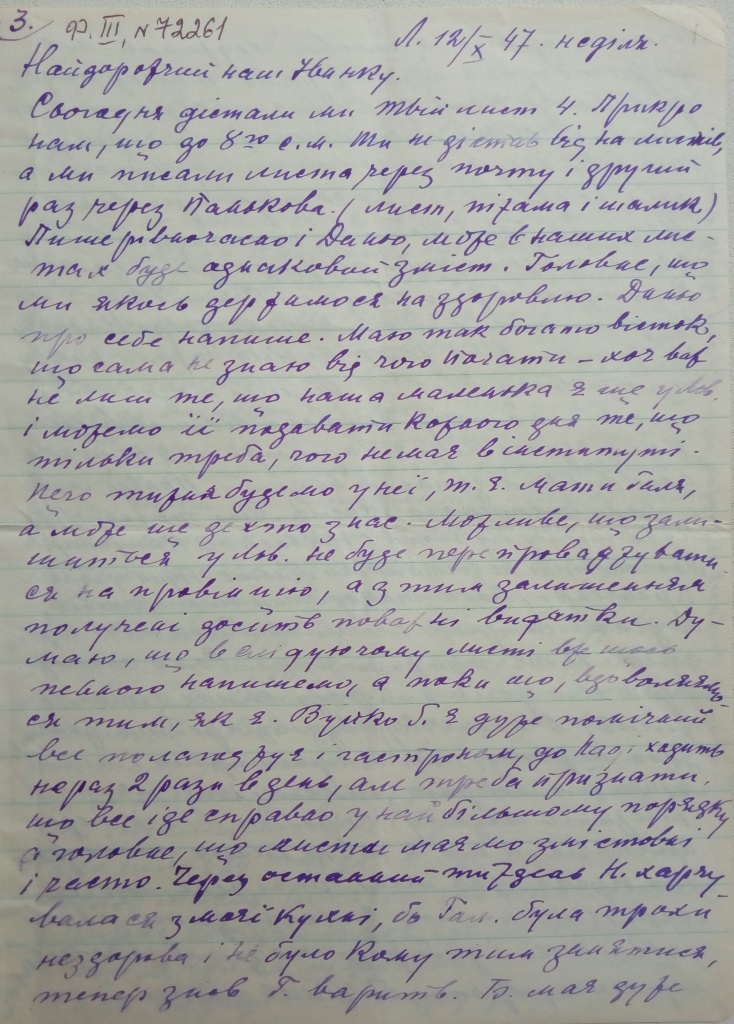 3. Ф. III, N 72261
Л. 12/X 47. неділя.
Найдорожчий наш Іванку.
Сьогодня дістали ми твій лист 4. Прикро
нам, що до 8го с.м. Ти не дістав від на листів,
а ми писали листа через почту і другий
раз через Панькова. (лист, піжама і шалик)
Пише рівночасно і Даню, може в наших лис-
тах буде однаковий зміст. Головне, що
ми якось держимося на здоровлю. Даню
про себе напише. Маю так богато вісток,
що сама не знаю від чого почати – хоч важ
не лиш те, що наша маленька є ще у Льв.
і можемо її подавати кожного дня те, що
тільки треба, чого немає в інституті.
Цего тижня будемо у неї, т. є. мати Галя,
а може ще дехто з нас. Можливе, що зали-
шиться у Льв. не буде перепроваджувати
ся на провінцію, а з тим залишенням
получені досить поважні видатки. Ду-
маю, що в слідуючому листі вже щось
певного напишемо, а поки що, вдоволяймо-
ся тим, як є. Вуйко Б. є дуже помічний
все полагоджує і гастроном, до Наді ходить
нераз 2 рази в день, але треба признати,
що все іде справно у найбільшому порядку
а головне, що листи маємо змістовні
і часто. Через останний тиждень Н. харчу
валася з моєї кухні, бо Гал. була трохи
нездорова і не було кому тим занятися,
тепер знов Г. варить. Б. має дуже